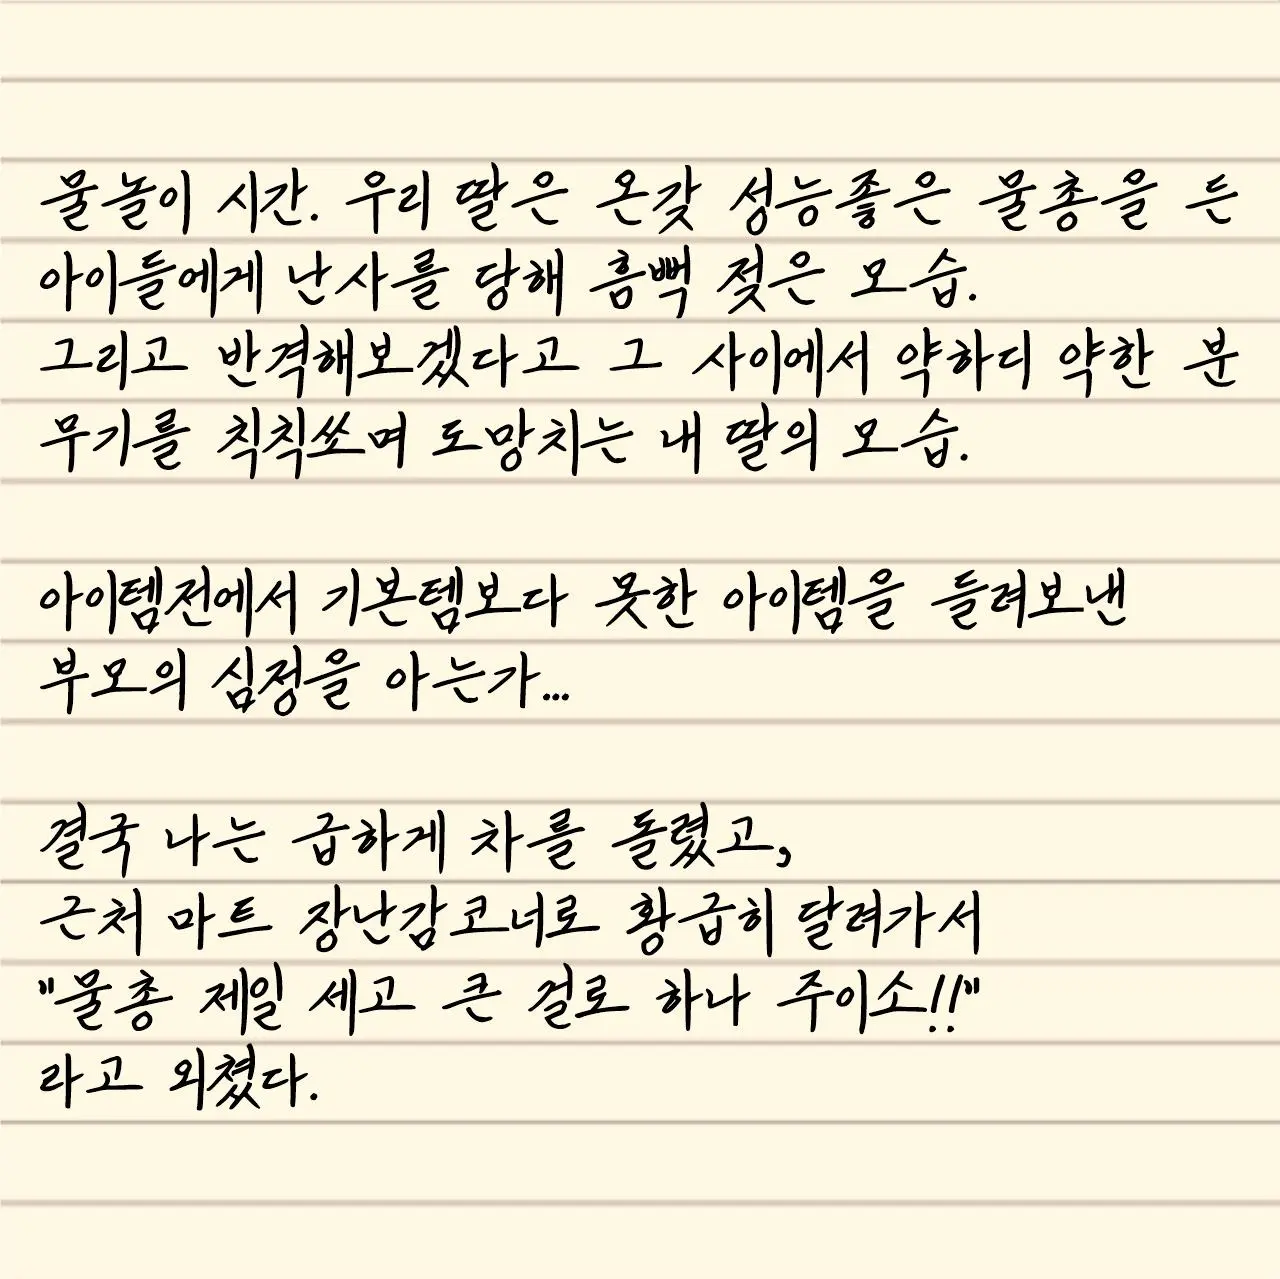 물놀이 시간. 우리 딸은 온갖 성능좋은 물총을 든
아이들에게 난사를 당해 흠뻑 젖은 모습.
그리고 반격해보겠다고 그 사이에서 약하디 약한 분
무기를 칙칙쏘며 도망치는 내 딸의 모습.
아이템전에서 기본템보다 못한 아이템을 들려보낸
부모의 심정을 아는가...
결국 나는 급하게 차를 돌렸고,
근처 마트 장난감코너로 황급히 달려가서
"물총 제일 세고 큰 걸로 하나 주이소!!"
라고 외쳤다.